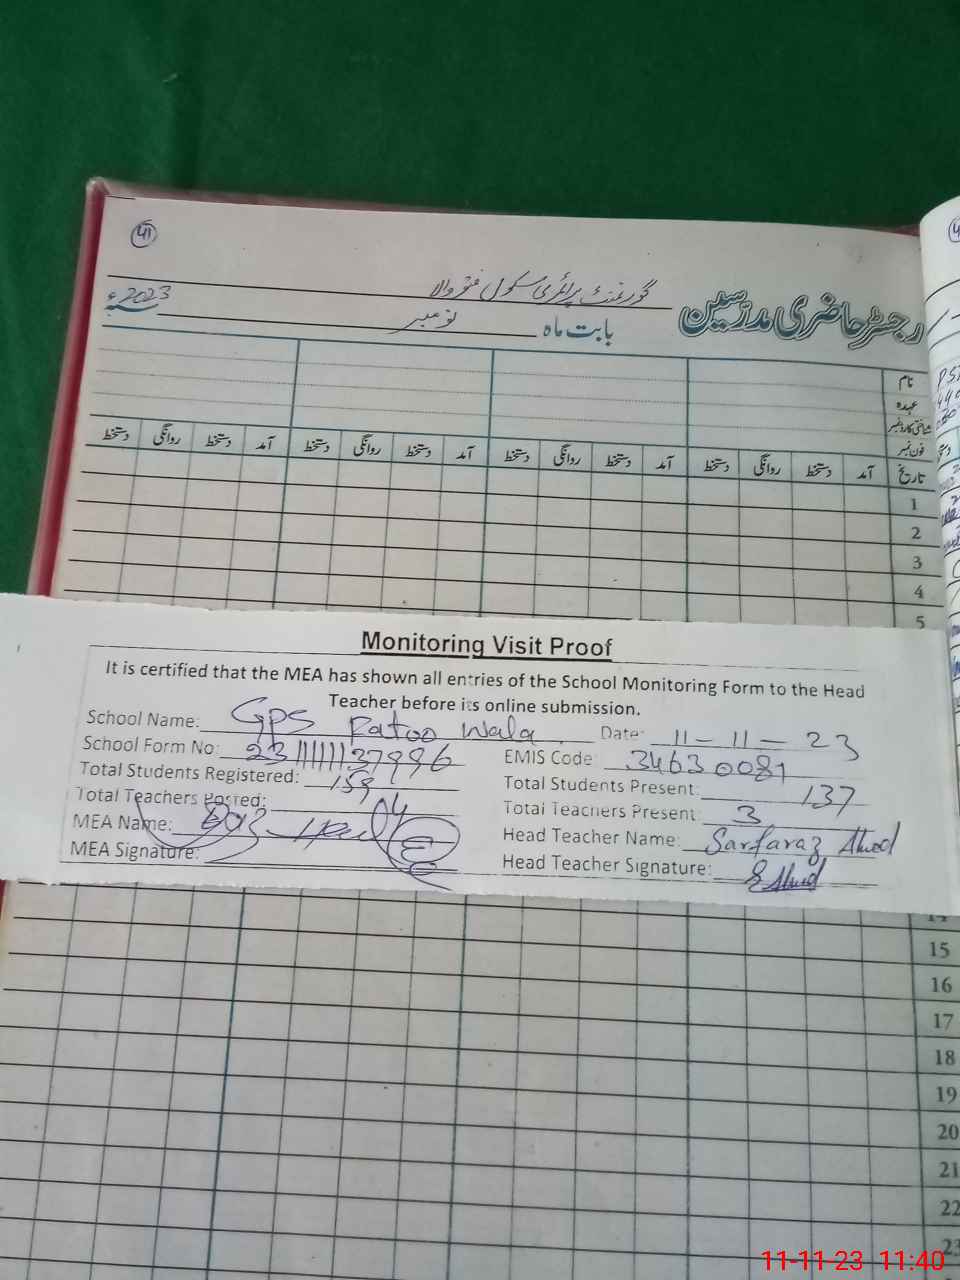 41
گورنمنٹ پرائمری سکول فتو والا
رجسٹر حاضری مدرسین
بابت ماہ نومبر 2023ء
نام
عہدہ
شناختی کارڈ نمبر
فون نمبر
تاریخ آمد دستخط روانگی دستخط آمد دستخط روانگی دستخط آمد دستخط روانگی دستخط آمد دستخط روانگی دستخط
1
2
3
4
5
Monitoring Visit Proof
It is certified that the MEA has shown all entries of the School Monitoring Form to the Head
Teacher before its online submission.
School Name: GPS Fatoo Wala Date: 11-11-23
School Form No: EMIS Code: 34630081
Total Students Registered: 159 Total Students Present: 137
Total Teachers Posted: 04 Total Teachers Present: 3
MEA Name: Head Teacher Name: Sarfaraz Ahmed
MEA Signature: Head Teacher Signature:
14
15
16
17
18
19
20
21
22
23
11-11-23 11:40